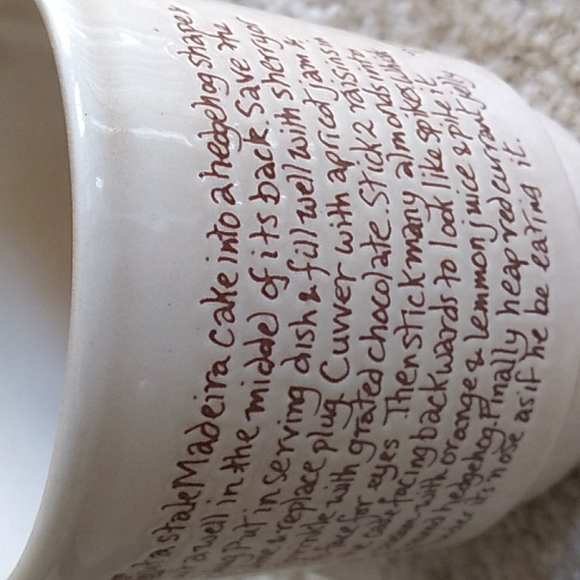 a stale Madeira cake into a hedgehog shape
a well in the middel of its back. Save the
Put in serving dish & fill well with sherry or
& replace plug. Cuvver with apricot jam &
with grated chocolate. Stick 2 raisins in
face for eyes. Then stick many almonds into
cake facing backwards to look like spikes.
with orange & lemmon juice & pile it
hedgehog. Finally heap red currant jelly
it's nose as if he be eating it.